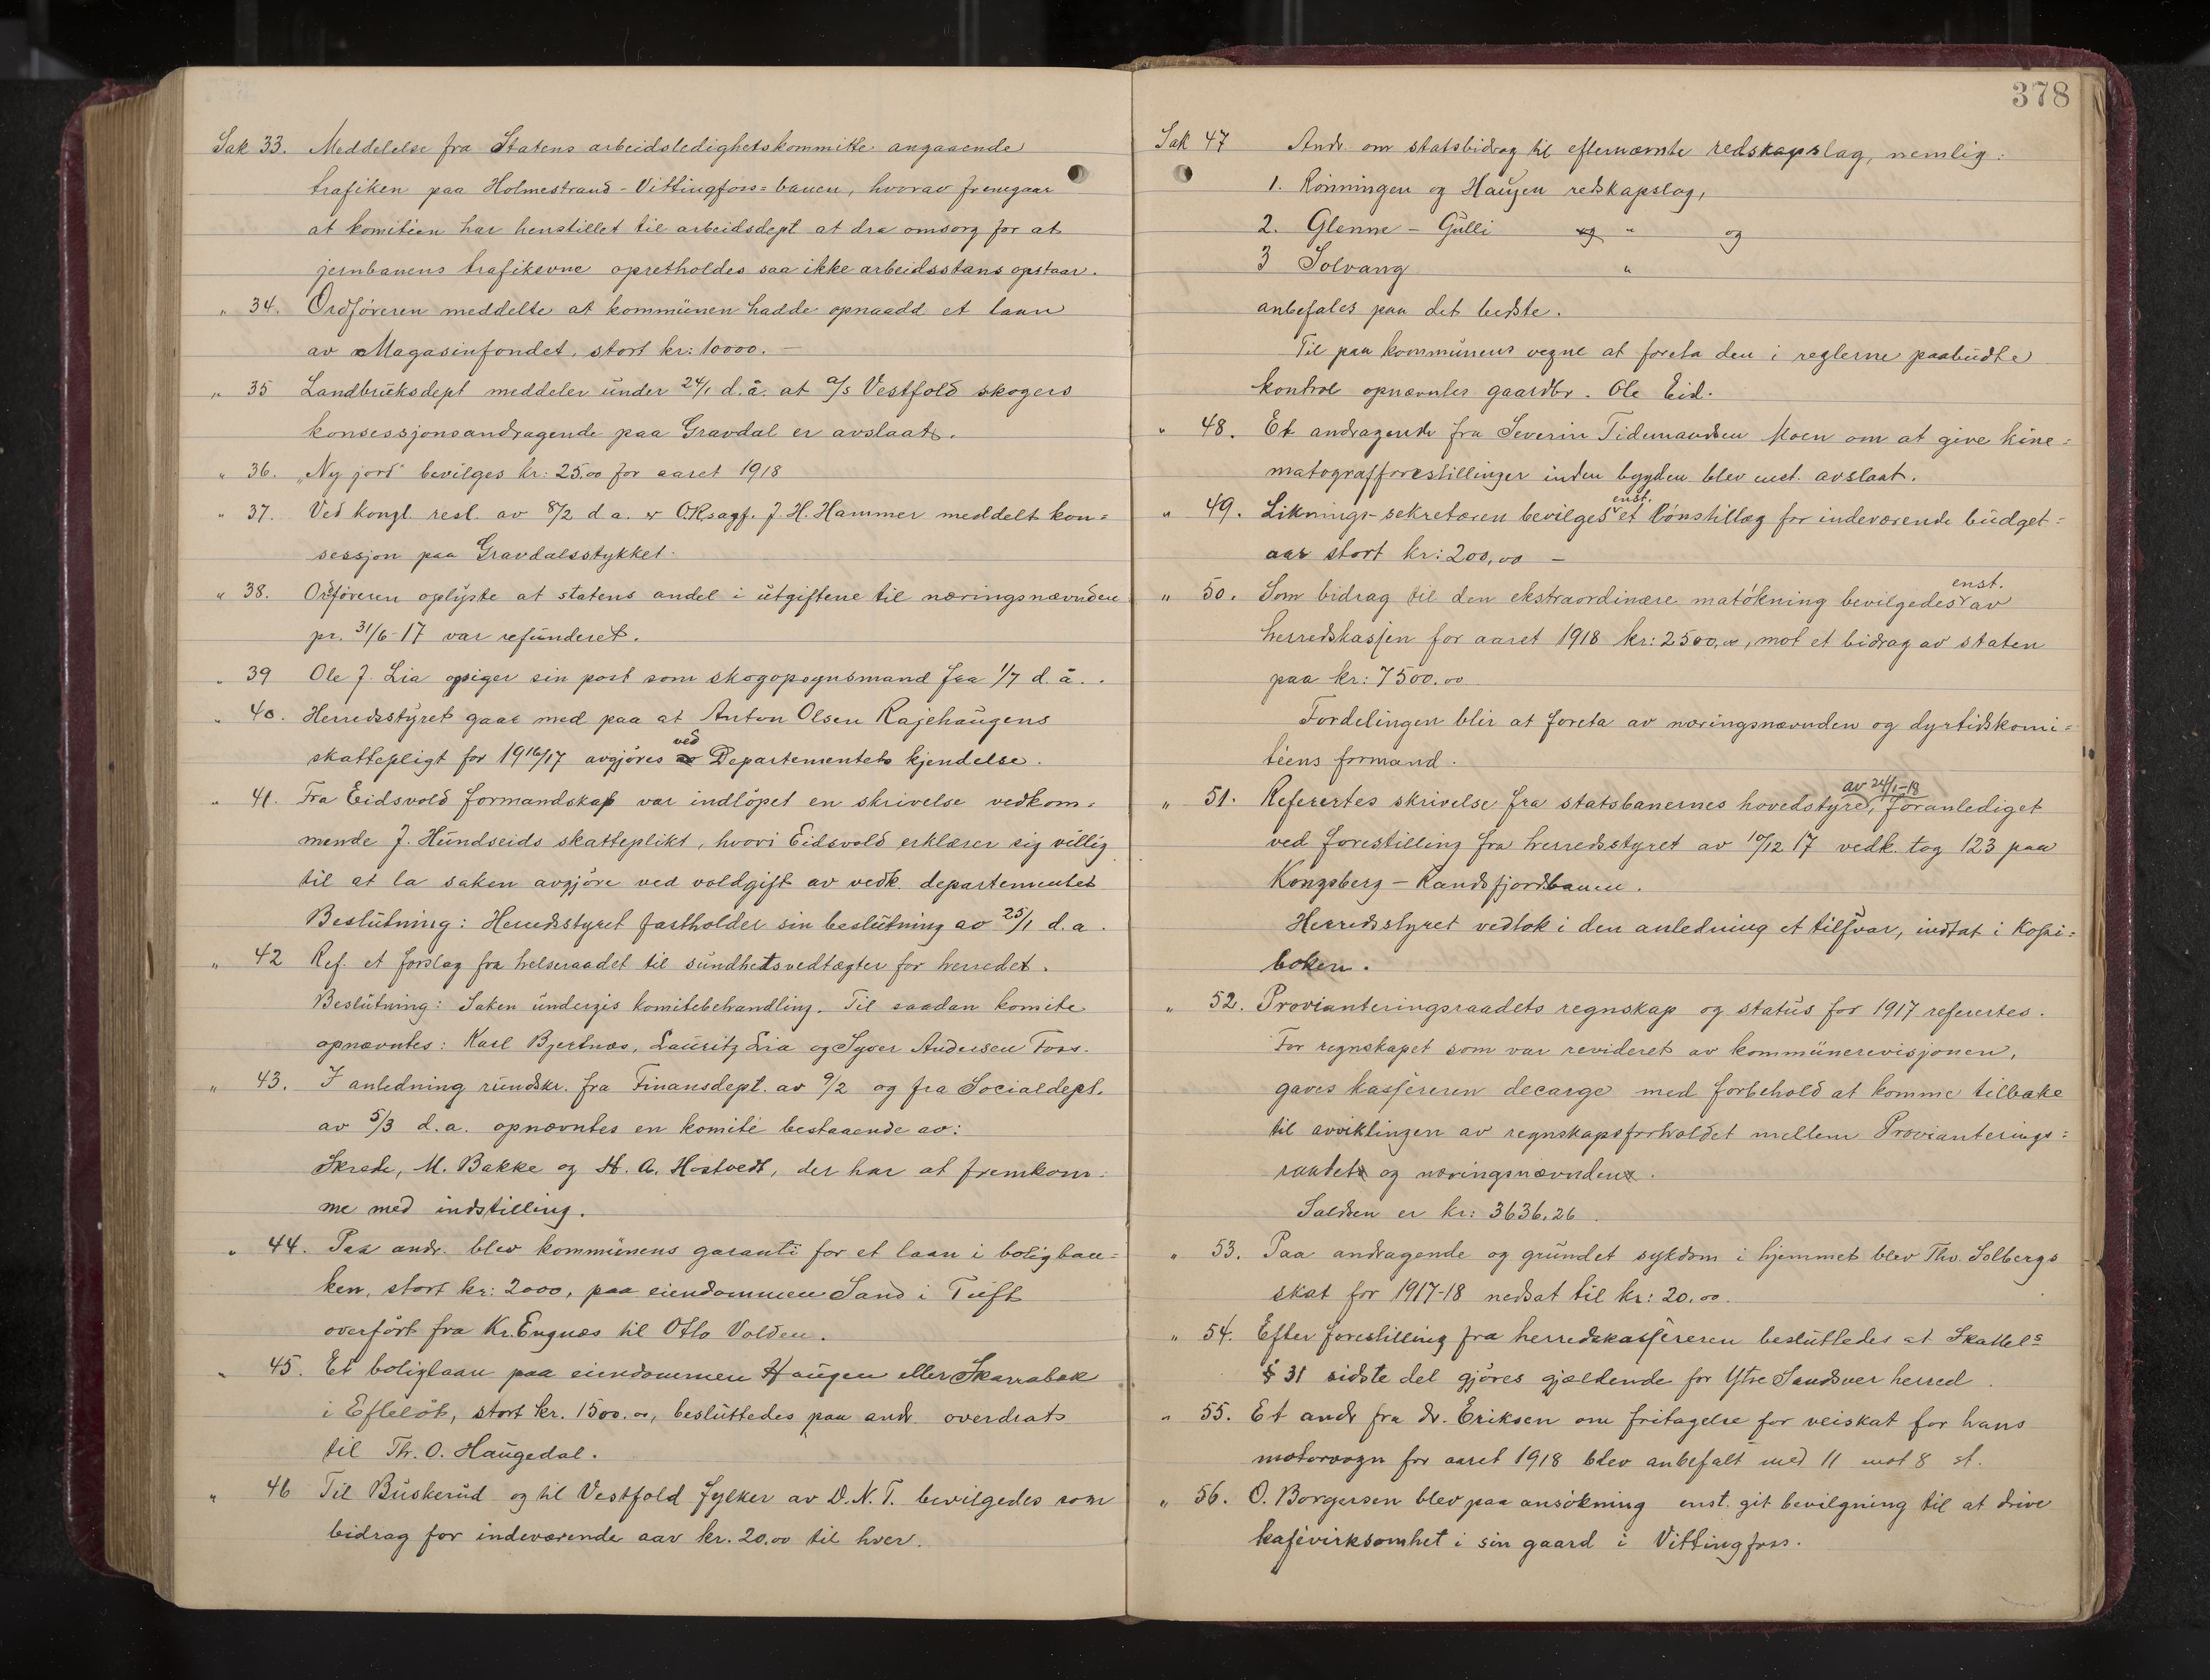 Sak 33. Meddelelse fra Statens arbeidsledighetskommitte angaaende
trafiken paa Holmestrand-Vittingfoss=banen, hvorav fremgaar
at komiteen har henstillet til arbeidsdept at dra omsorg for at
jernbanens trafikevne opretholdes saa ikke arbeidsstans opstaar.
" 34. Ordföreren meddelte at kommunen hadde opnaadd et laan
av Magasinfondet, stort kr: 10000. —
" 35 Landbruksdept meddeler under 24/1 d.å. at a/s Vestfold skogers
konsessjonsandragende paa Gravdal er avslaat.
" 36. „Ny jord" bevilges kr: 25.00 for aaret 1918
" 37. Ved kongl. resl. av 8/2 d a. er O.R.sagf. J. H. Hammer meddelt kon=
sessjon paa Gravdalsstykket.
" 38. Ordföreren oplyste at statens andel i utgiftene til næringsnævnden
pr. 31/6-17 var refunderet.
" 39 Ole J. Lia opsiger sin post som skogopsynsmand fra 1/7 d. å. .
" 40. Herredsstyret gaar med paa at Anton Olsen Rajehaugens
skattepligt for 1916/17 avgjöres ved Departementets kjendelse.
" 41. Fra Eidsvold formandskap var indlöpet en skrivelse vedkom=
mende J. Hundseids skatteplikt, hvori Eidsvold erklærer sig villig
til at la saken avgjöre ved voldgift av vedk. departementet
Beslutning: Herredsstyret fastholder sin beslutning av 25/1 d. a.
" 42 Ref. et forslag fra helseraadet til sundhetsvedtægter for herredet.
Beslutning: Saken undergis komitebehandling. Til saadan komite
opnævntes: Karl Bjertnæs, Lauritz Lia og Syver Andersen Foss.
" 43. I anledning rundskr. fra Finansdept. av 9/2 og fra Socialdept.
av 5/3 d.a. opnævntes en komité bestaaende av:
Skrede, M. Bakke og H. A. Hostvedt, der har at fremkom=
me med indstilling.
" 44. Paa andr. blev kommunens garanti for et laan i boligban=
ken, stort kr: 2000, paa eiendommen Sand i Tuft
overfört fra Kr. Engnæs til Otto Volden.
" 45. Et boliglaan paa eiendommen Haugen eller Skarrabak
i Efteløt, stort kr. 1500.00, besluttedes paa andr. overdrat
til Th. O. Haugedal.
" 46 Til Buskerud og til Vestfold fylker av D.N.T. bevilgedes som
bidrag for indeværende aar kr. 20.00 til hver.
378
Sak 47 Andr. om statsbidrag til efternævnte redskapslag, nemlig:
1. Rönningen og Haugen redskapslag,
2. Glenne - Gulli og " og
3 Solvang "
anbefales paa det bedste.
Til paa kommunens vegne at foreta den i reglerne paabudte
kontrol opnævntes gaardbr. Ole Eid.
" 48. Et andragende fra Severin Tidemandsen Moen om at give kine=
matografforestillinger inden bygden blev enst. avslaat.
" 49. Liknings-sekretæren bevilges enst. et lönstillæg for indeværende budget=
aar stort kr: 200,00 —
" 50. Som bidrag til den ekstraordinære matökning bevilgedes enst. av
herredskassen for aaret 1918 kr: 2500,00, mot et bidrag av staten
paa kr: 7500.00
Fordelingen blir at foreta av næringsnævnden og dyrtidskomi=
téens formand.
" 51. Refertes skrivelse fra statsbanernes hovedstyre, av 24/1-18 foranlediget
ved forestilling fra herredsstyret av 10/12 17 vedk. tog 123 paa
Kongsberg - Randsfjordbanen.
Herredsstyret vedtok i den anledning et tilsvar, indtat i Kopi=
boken.
" 52. Provianteringsraadets regnskap og status for 1917 refertes.
For regnskapet som var revideret av kommunerevisjonen,
gaves kassereren decarge med forbehold at komme tilbake
til avviklingen av regnskapsforholdet mellem Provianterings=
raadet og næringsnævnden.
Saldoen er kr: 3636,26.
" 53. Paa andragende og grundet sykdom i hjemmet blev Thv. Solbergs
skat for 1917-18 nedsat til kr: 20.00.
" 54. Efter forestilling fra herredskassereren besluttedes at Skattels
§ 31 sidste del gjöres gjældende for Ytre Sandsver herred.
" 55. Et andr fra dr. Eriksen om fritagelse for veiskat for hans
motorvogn for aaret 1918 blev anbefalt med 11 mot 8 st.
" 56. O. Borgersen blev paa ansökning enst. git bevilgning til at drive
kafévirksomhet i sin gaard i Vittingfoss.